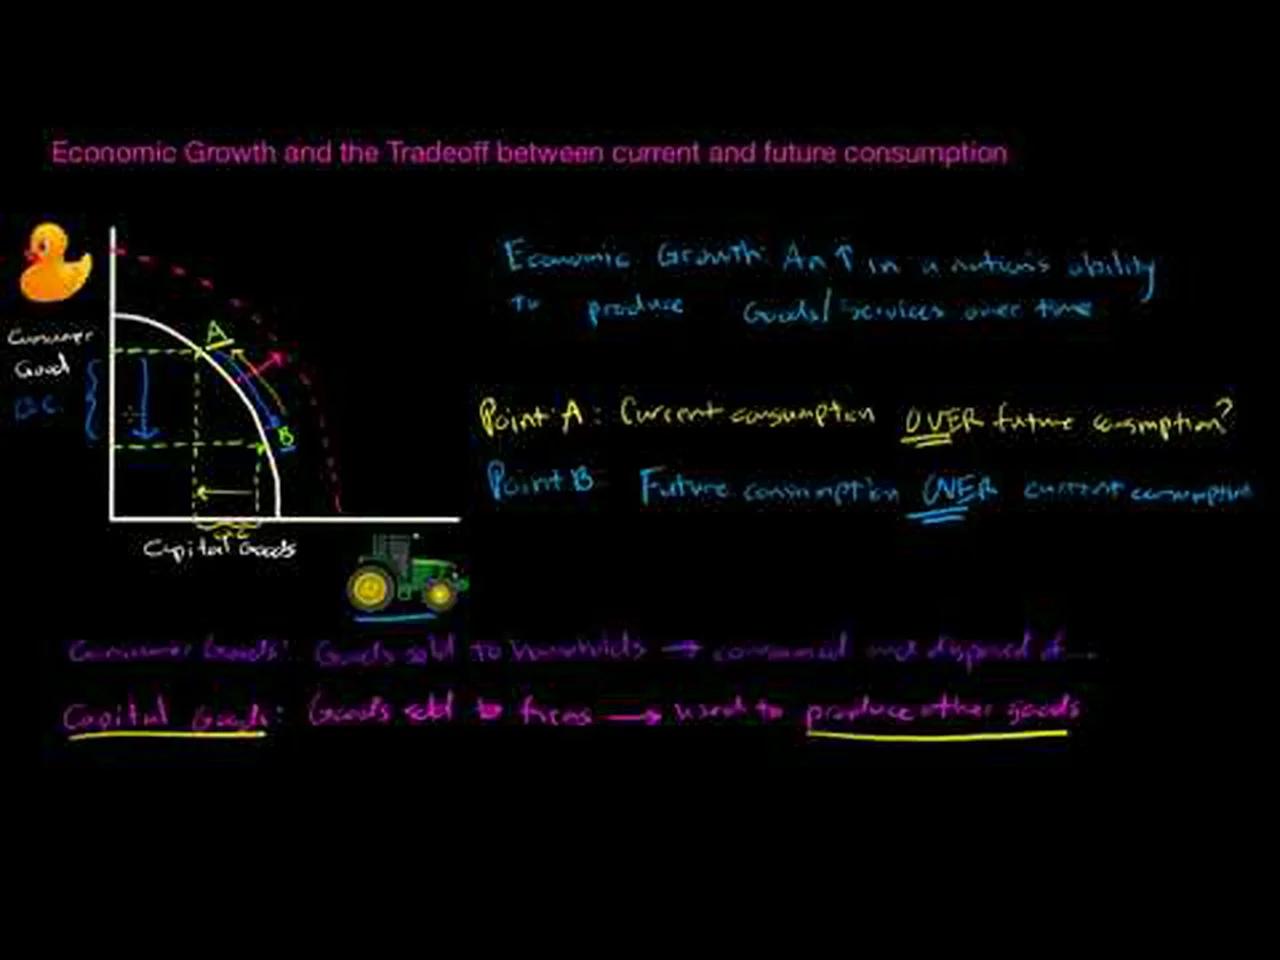 Economic Growth and the Tradeoff between current and future consumption
Economic Growth: An ↑ in a nation's ability
to produce Goods/Services over time
A
Consumer
Good
O.C.
B
Point A: Current consumption OVER future consumption?
Point B Future consumption OVER current consumption
Capital Goods
Consumer Goods: Goods sold to households → consumed and disposed of...
Capital Goods: Goods sold to firms → used to produce other goods